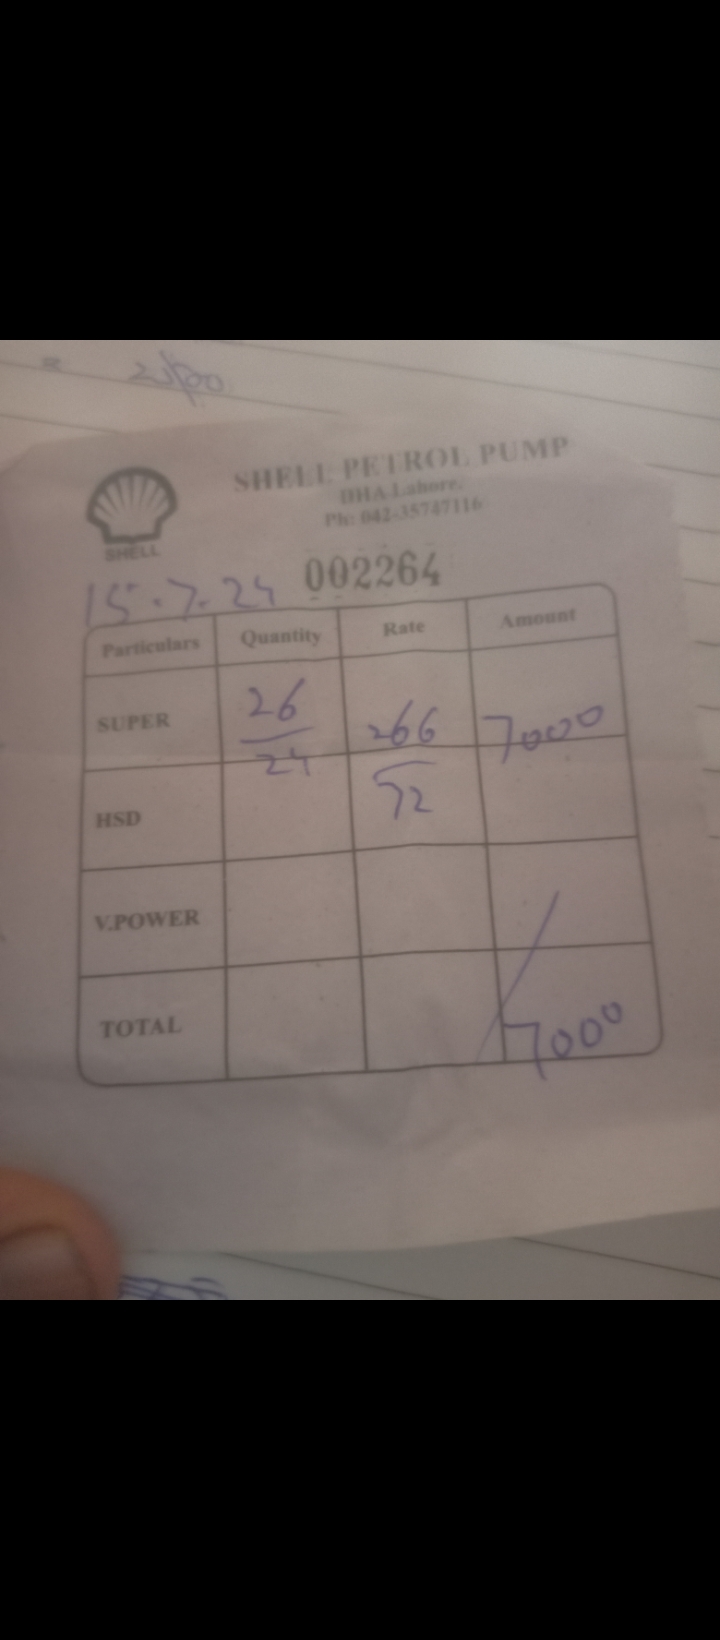 SHELL PETROL PUMP
DHA Lahore.
Ph: 042-35747116
SHELL
002264
15.7.24
Particulars Quantity Rate Amount
SUPER 26/24 266/72 7000
HSD
V.POWER
TOTAL 7000